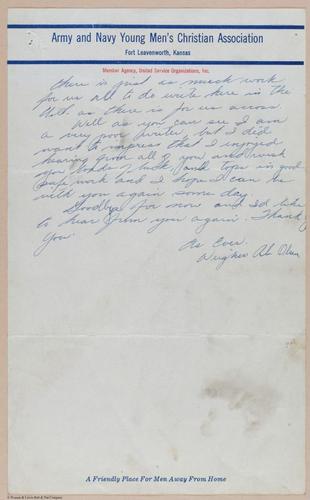 Army and Navy Young Men's Christian Association
Fort Leavenworth, Kansas
Member Agency, United Service Organizations, Inc.
there is just as much work
for us all to do write here in the
as there is for us across.
Well as you can see I am
a very poor writer, but I did
want to impress that I enjoyed
hearing from all of you and wish
you loads of luck and tops in good
safe work and I hope I can be
with you again some day.
Goodbye for now and I'd like
to hear from you again. Thank
you.
As Ever.
Al
A Friendly Place For Men Away From Home